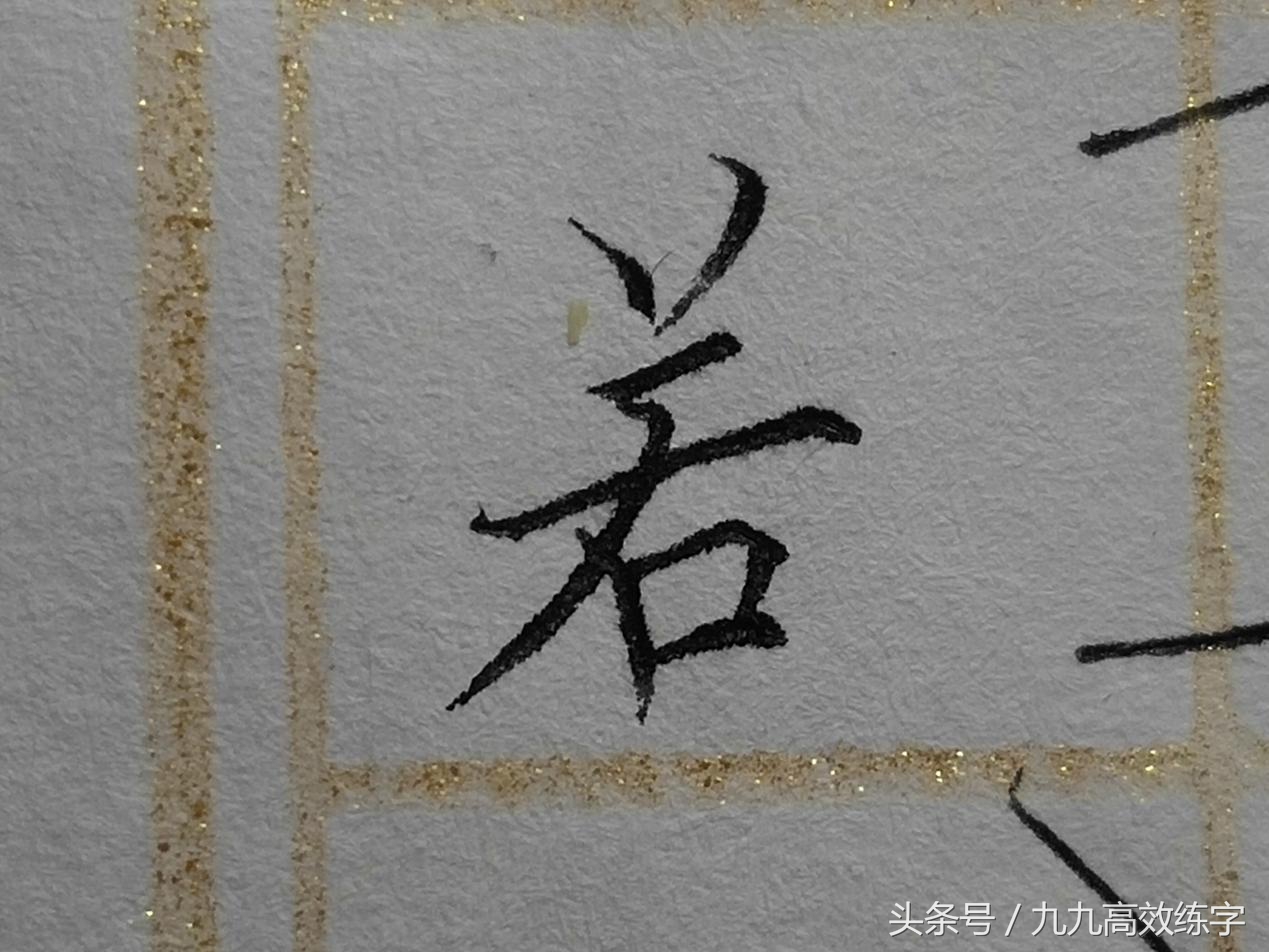 若
头条号 / 九九高效练字